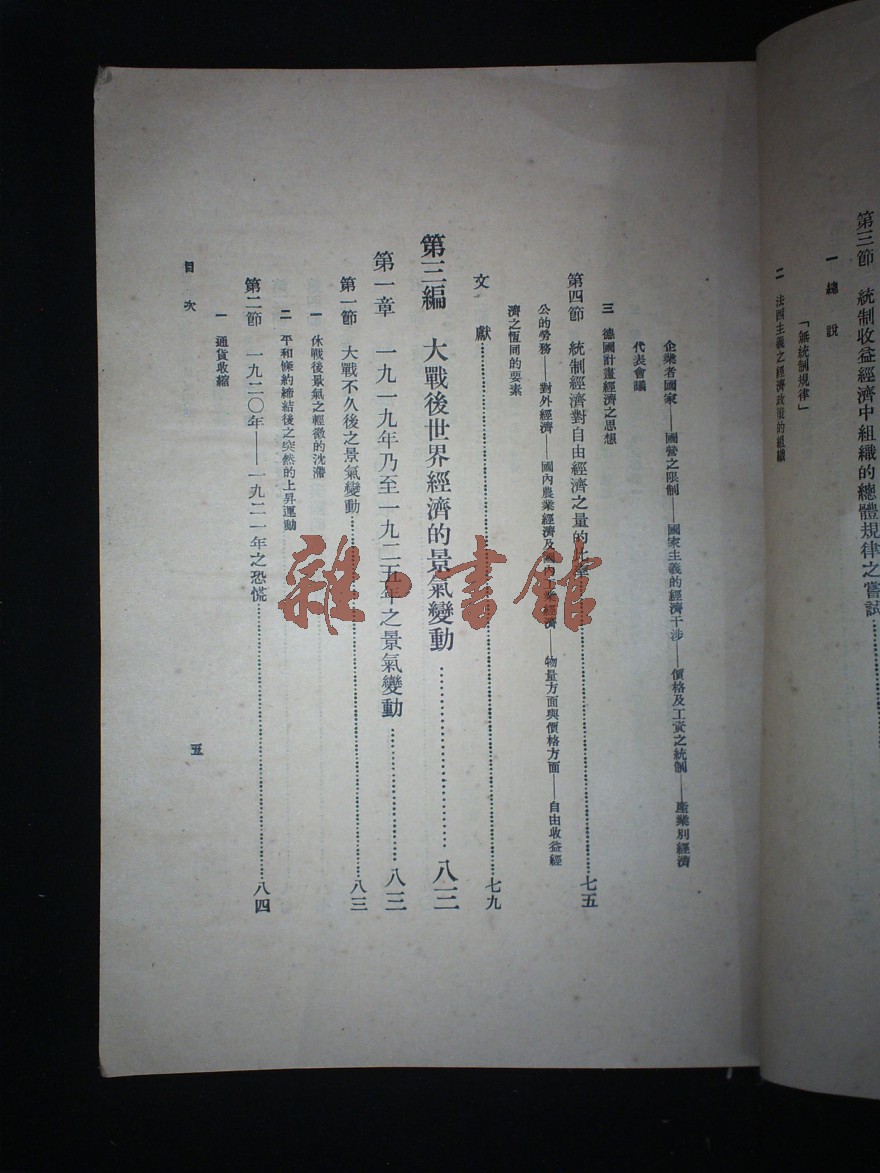 第三節　統制收益經濟中組織的總體規律之嘗試……
一　總說
「無統制規律」
二　法西主義之經濟政策的組織
企業者國家——國營之限制——國家主義的經濟干涉——價格及工資之統制——產業別經濟
代表會議
三　德國計畫經濟之思想
第四節　統制經濟對自由經濟之量的比……七五
公的勞務——對外經濟——國內農業經濟及國內工業經濟——物量方面與價格方面——自由收益經
濟之恆同的要素
文　獻……七九
第三編　大戰後世界經濟的景氣變動……八三
第一章　一九一九年乃至一九二五年之景氣變動……八三
第一節　大戰不久後之景氣變動……八三
一　休戰後景氣之輕微的沈滯
二　平和條約締結後之突然的上昇運動
第二節　一九二〇年——一九二一年之恐慌……八四
一　通貨收縮
目　次
五
雜·書館